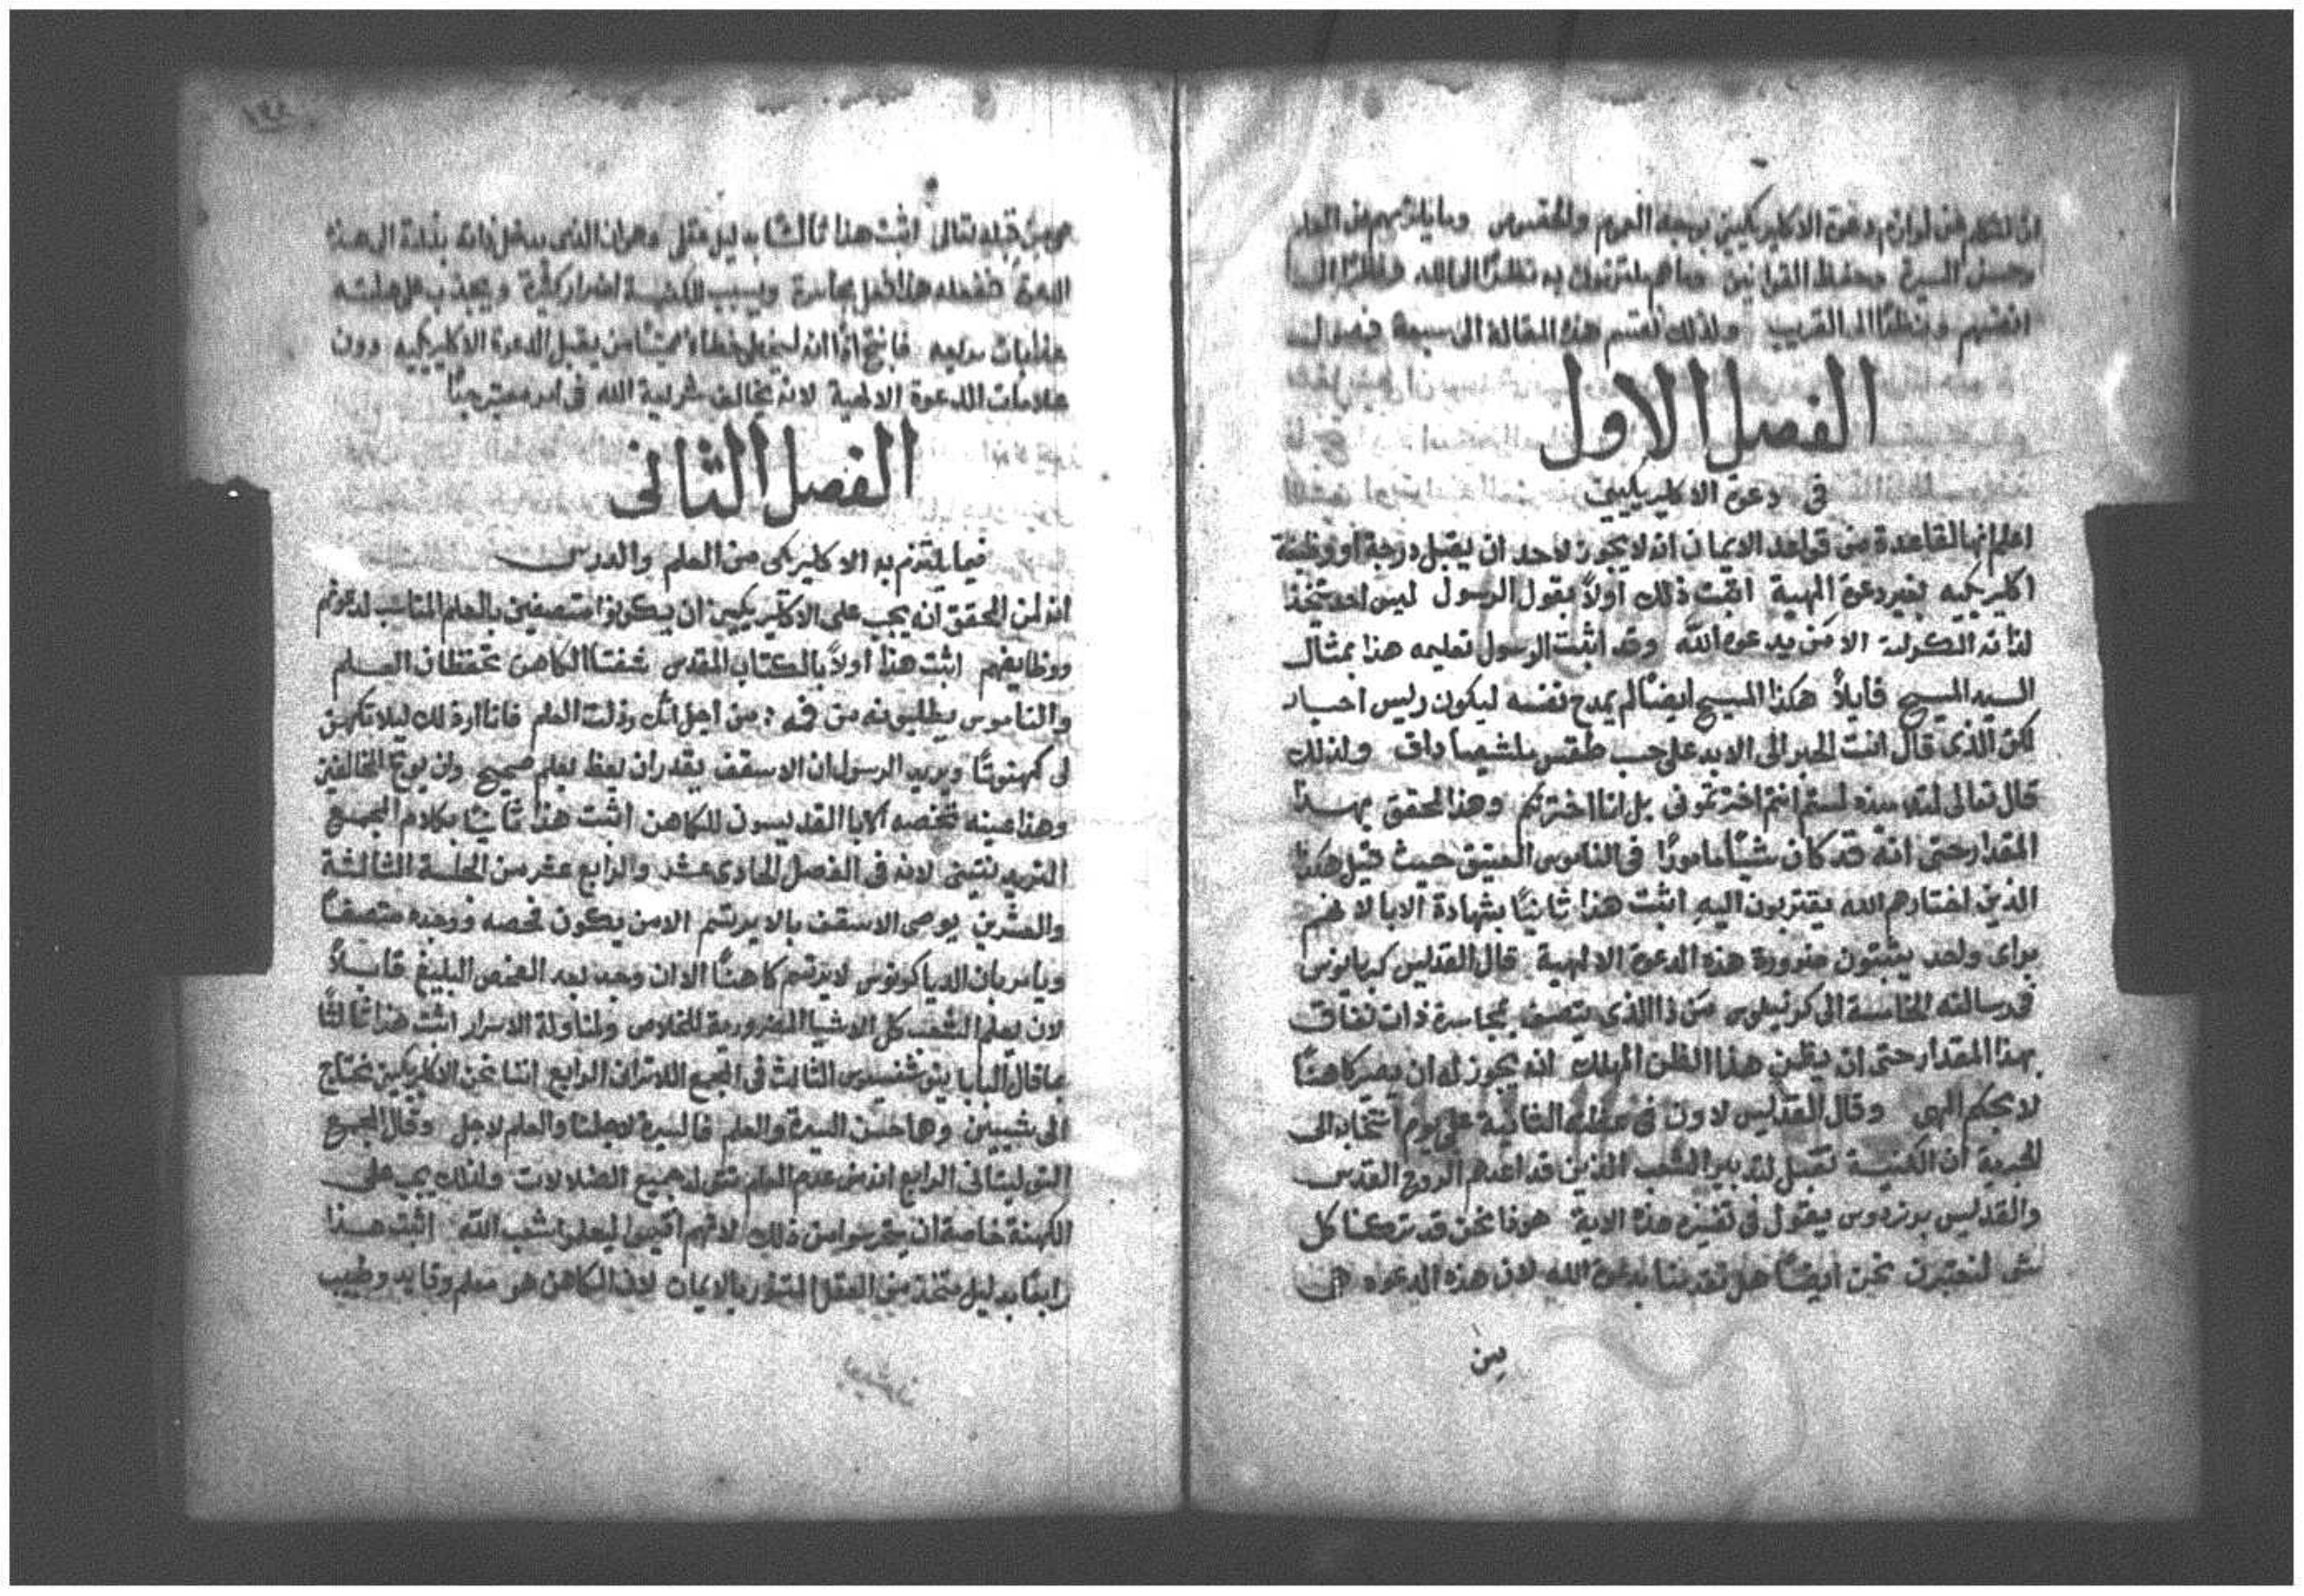 ان نتكلم عن لوازم دعوة الاكليريكيين بوجه العموم والخصوص وما يلزمهم من العلم
وحسن السيرة وحفظ القوانين وما هم ملتزمون به نظرًا الى الله ونظرًا الى
انفسهم ونظرًا الى القريب ولذلك نقسم هذه المقالة الى سبعة فصول
الفصل الاول
فى دعوة الاكليريكيين
اعلم انها لقاعدة من قواعد الايمان انه لا يجوز لاحد ان يقبل درجة او وظيفة
اكليريكيه بغير دعوة الهية اثبت ذلك اولاً بقول الرسول ليس احد يتخذ
لذاته الكرامة الا من يدعوه الله وقد اثبت الرسول تعليمه هذا بمثال
السيد المسيح قايلاً هكذا المسيح ايضًا لم يمدح نفسه ليكون رييس احبار
لكن الذى قال انت الحبر الى الابد على حسب طقس ملشيصاداق ولذلك
قال تعالى لتلاميذه لستم انتم اخترتمونى بل انا اخترتكم وهذا محقق بهذا
المقدار حتى انه قد كان شيًا مامورًا فى الناموس العتيق حيث قيل هكذا
الذين اختارهم الله يقتربون اليه اثبت هذا ثانيًا بشهادة الابا لانهم
براى واحد يثبتون ضرورة هذه الدعوة الالهية قال القديس كبريانوس
فى رسالته الخامسة الى كرنيليوس من ذا الذى يتصف بجاسرة ذات نفاق
بهذا المقدار حتى ان يظن هذا الظن المهلك انه يجوز له ان يصير كاهنًا
لا بحكم الهى وقال القديس لاون فى عظته الثانية على يوم انتخابه الى
الحبرية ان الكنيسة تقبل لتدبير الشعب الذين قد اعدهم الروح القدس
والقديس برنردوس يقول فى تفسيره هذه الاية هوذا نحن قد تركنا كل
شى لنعتبرن نحن ايضًا هل تقدمنا بدعوة الله لان هذه الدعوه هى
من
١٣٤
هى من قبله تعالى اثبت هذا ثالثًا بدليل عقلى وهو ان الذى يدخل ذاته بذاته الى هذه
الدعوة ففعله هذا فعل بجاسرة ويسبب للكنيسة اضرار كثيرة ويجذب على هامته
عذابات مريعه فانتج اذًا انه ليخطى خطاءً مميتًا من يقبل الدعوة الاكليريكيه دون
علامات الدعوة الالهية لانه يخالف شريعة الله فى امر معتبر جدًا
الفصل الثانى
فيما يلتزم به الاكليريكى من العلم والدرس
انه لمن المحقق انه يجب على الاكليريكيين ان يكونوا متصفين بالعلم المناسب لدعوتهم
ووظايفهم اثبت هذا اولاً بالكتاب المقدس شفتا الكاهن تحفظان العلم
والناموس يطلبونه من فمه ؛ من اجل انك رذلت العلم فانا ارذلك ليلا تكهن
لى كهنوتًا ويريد الرسول ان الاسقف يقدر ان يعظ بعلم صحيح وان يوبخ المخالفين
وهذا عينه تخصصه الابا القديسون للكاهن اثبت هذا ثانيًا بكلام المجمع
التريدنتينى لانه فى الفصل الحادى عشر والرابع عشر من الجلسة الثالثة
والعشرين يوصى الاسقف بالا يرتسم الا من يكون فحصه ووجده متصفًا
ويامر بان الدياكونوس لا يرتسم كاهنًا الا ان وجد بعد الفحص البليغ قابلاً
لان يعلم الشعب كل الاشيا الضرورية للخلاص ولمناولة الاسرار اثبت هذا ثالثًا
بما قال البابا ينوشنسيوس الثالث فى المجمع اللاترانى الرابع اننا نحن الاكليريكيين نحتاج
الى شييين وهما حسن السيرة والعلم فالسيرة لاجلنا والعلم لاجل وقال المجمع
التوليتانى الرابع ان من عدم العلم تتولد جميع الضلالات ولذلك يجب على
الكهنة خاصة ان يحترسوا من ذلك لانهم اقيموا ليعلموا شعب الله اثبت هذا
رابعًا بدليل متخذ من العقل المتنور بالايمان لان الكاهن هو معلم وقايد وطبيب